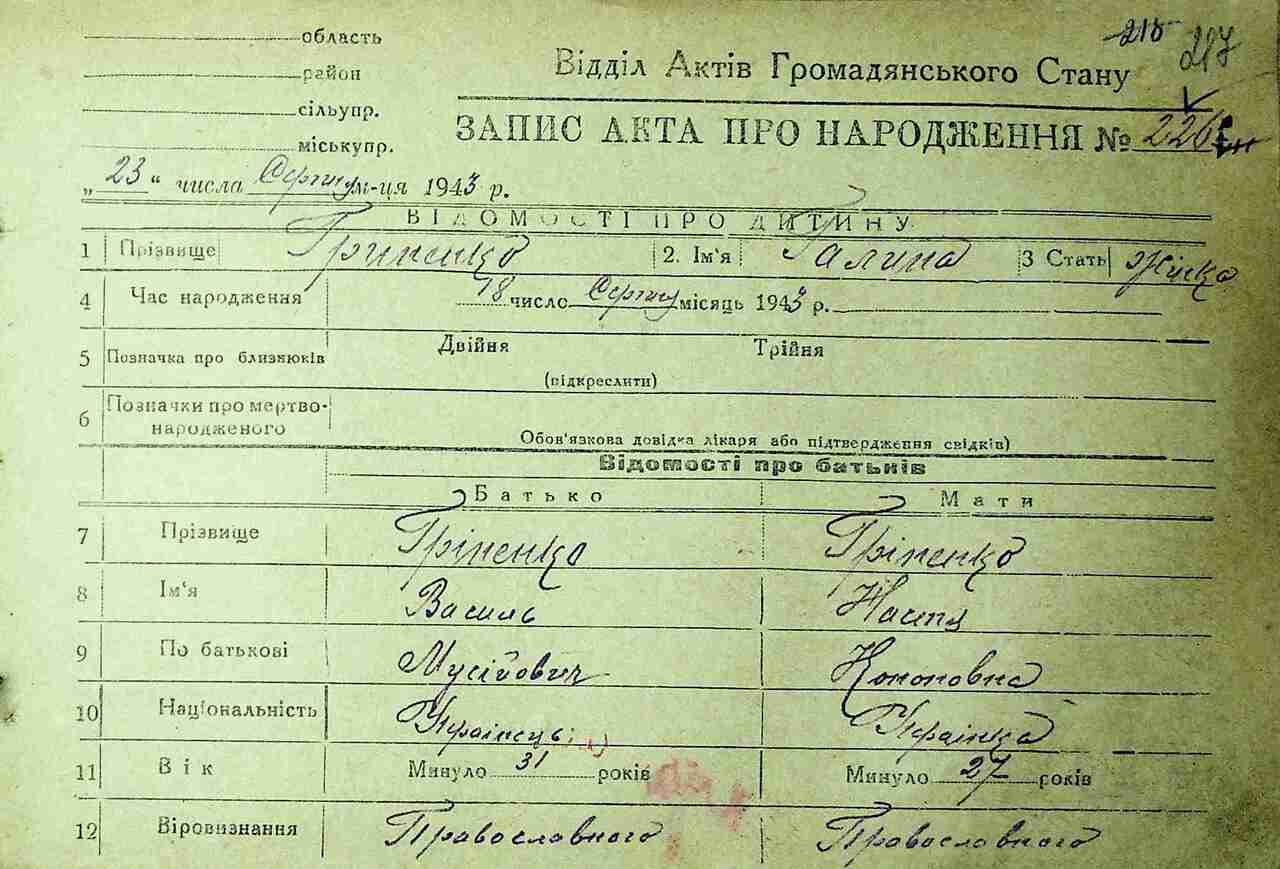 область
район
сільупр.
міськупр.
218
217
Відділ Актів Громадянського Стану
ЗАПИС АКТА ПРО НАРОДЖЕННЯ № 226
„23“ числа Серпня м-ця 1943 р.
ВІДОМОСТІ ПРО ДИТИНУ
1 Прізвище Гриненко 2. Ім'я Галина 3 Стать Жінка
4 Час народження 18 число Серпня місяць 1943 р.
5 Позначка про близнюків Двійня Трійня
(підкреслити)
6 Позначки про мертво-
народженого
Обов'язкова довідка лікаря або підтвердження свідків)
Відомості про батьків
Батько Мати
7 Прізвище Гріненко Гріненко
8 Ім'я Василь Настя
9 По батькові Мусійович Кононовна
10 Національність Українець Українка
11 Вік Минуло 31 років Минуло 27 років
12 Віровизнання Православного Православного